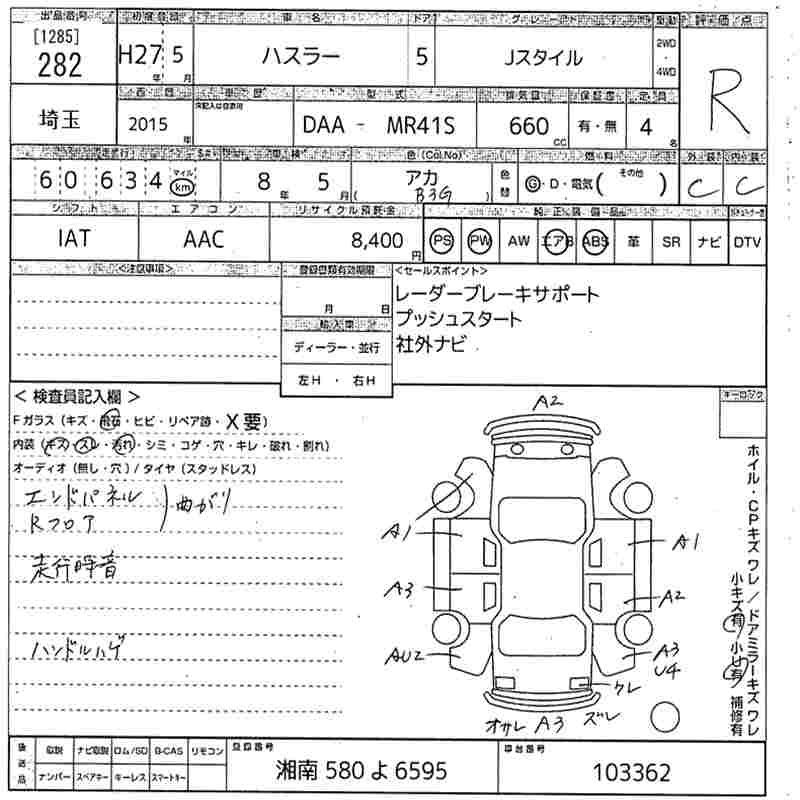 出品番号 初度登録 車名 ドア グレード 駆動 評価点
[1285]
282 H27年 5月 ハスラー 5 Jスタイル 2WD・4WD R
西暦 車歴 型式 排気量 保証書 定員
埼玉 2015年 DAA - MR41S 660cc 有・無 4名
車検 色(Col.No) 燃料 外装 内装
60,634 マイル km 8年 5月 アカ B3G 色替 G・D・電気( その他 ) C C
シフト エアコン リサイクル預託金 純正装備品
IAT AAC 8,400円 PS PW AW エアB ABS 革 SR ナビ DTV
<注意事項> 登録書類有効期限 <セールスポイント>
月 日
レーダーブレーキサポート
プッシュスタート
社外ナビ
輸入車
ディーラー・並行
左H・右H
<検査員記入欄> キーロック
Fガラス(キズ・飛石・ヒビ・リペア跡・X要)
内装(キズ・スレ・汚れ・シミ・コゲ・穴・キレ・破れ・割れ)
オーディオ(無し・穴)/タイヤ(スタッドレス)
エンドパネル
Rフロア )曲がり
走行時音
ハンドルハゲ
A2
A1 A1
A3 A2
AU2 A3
U4
クレ
オサレ A3 ズレ
ホイル・CPキズ ワレ/ドアミラーキズ ワレ
小キズ有/小U有/補修有
後送品 取説 ナビ取説 ロム/SD B-CAS リモコン 登録番号 車台番号
ナンバー スペアキー キーレス スマートキー 湘南 580 よ 6595 103362